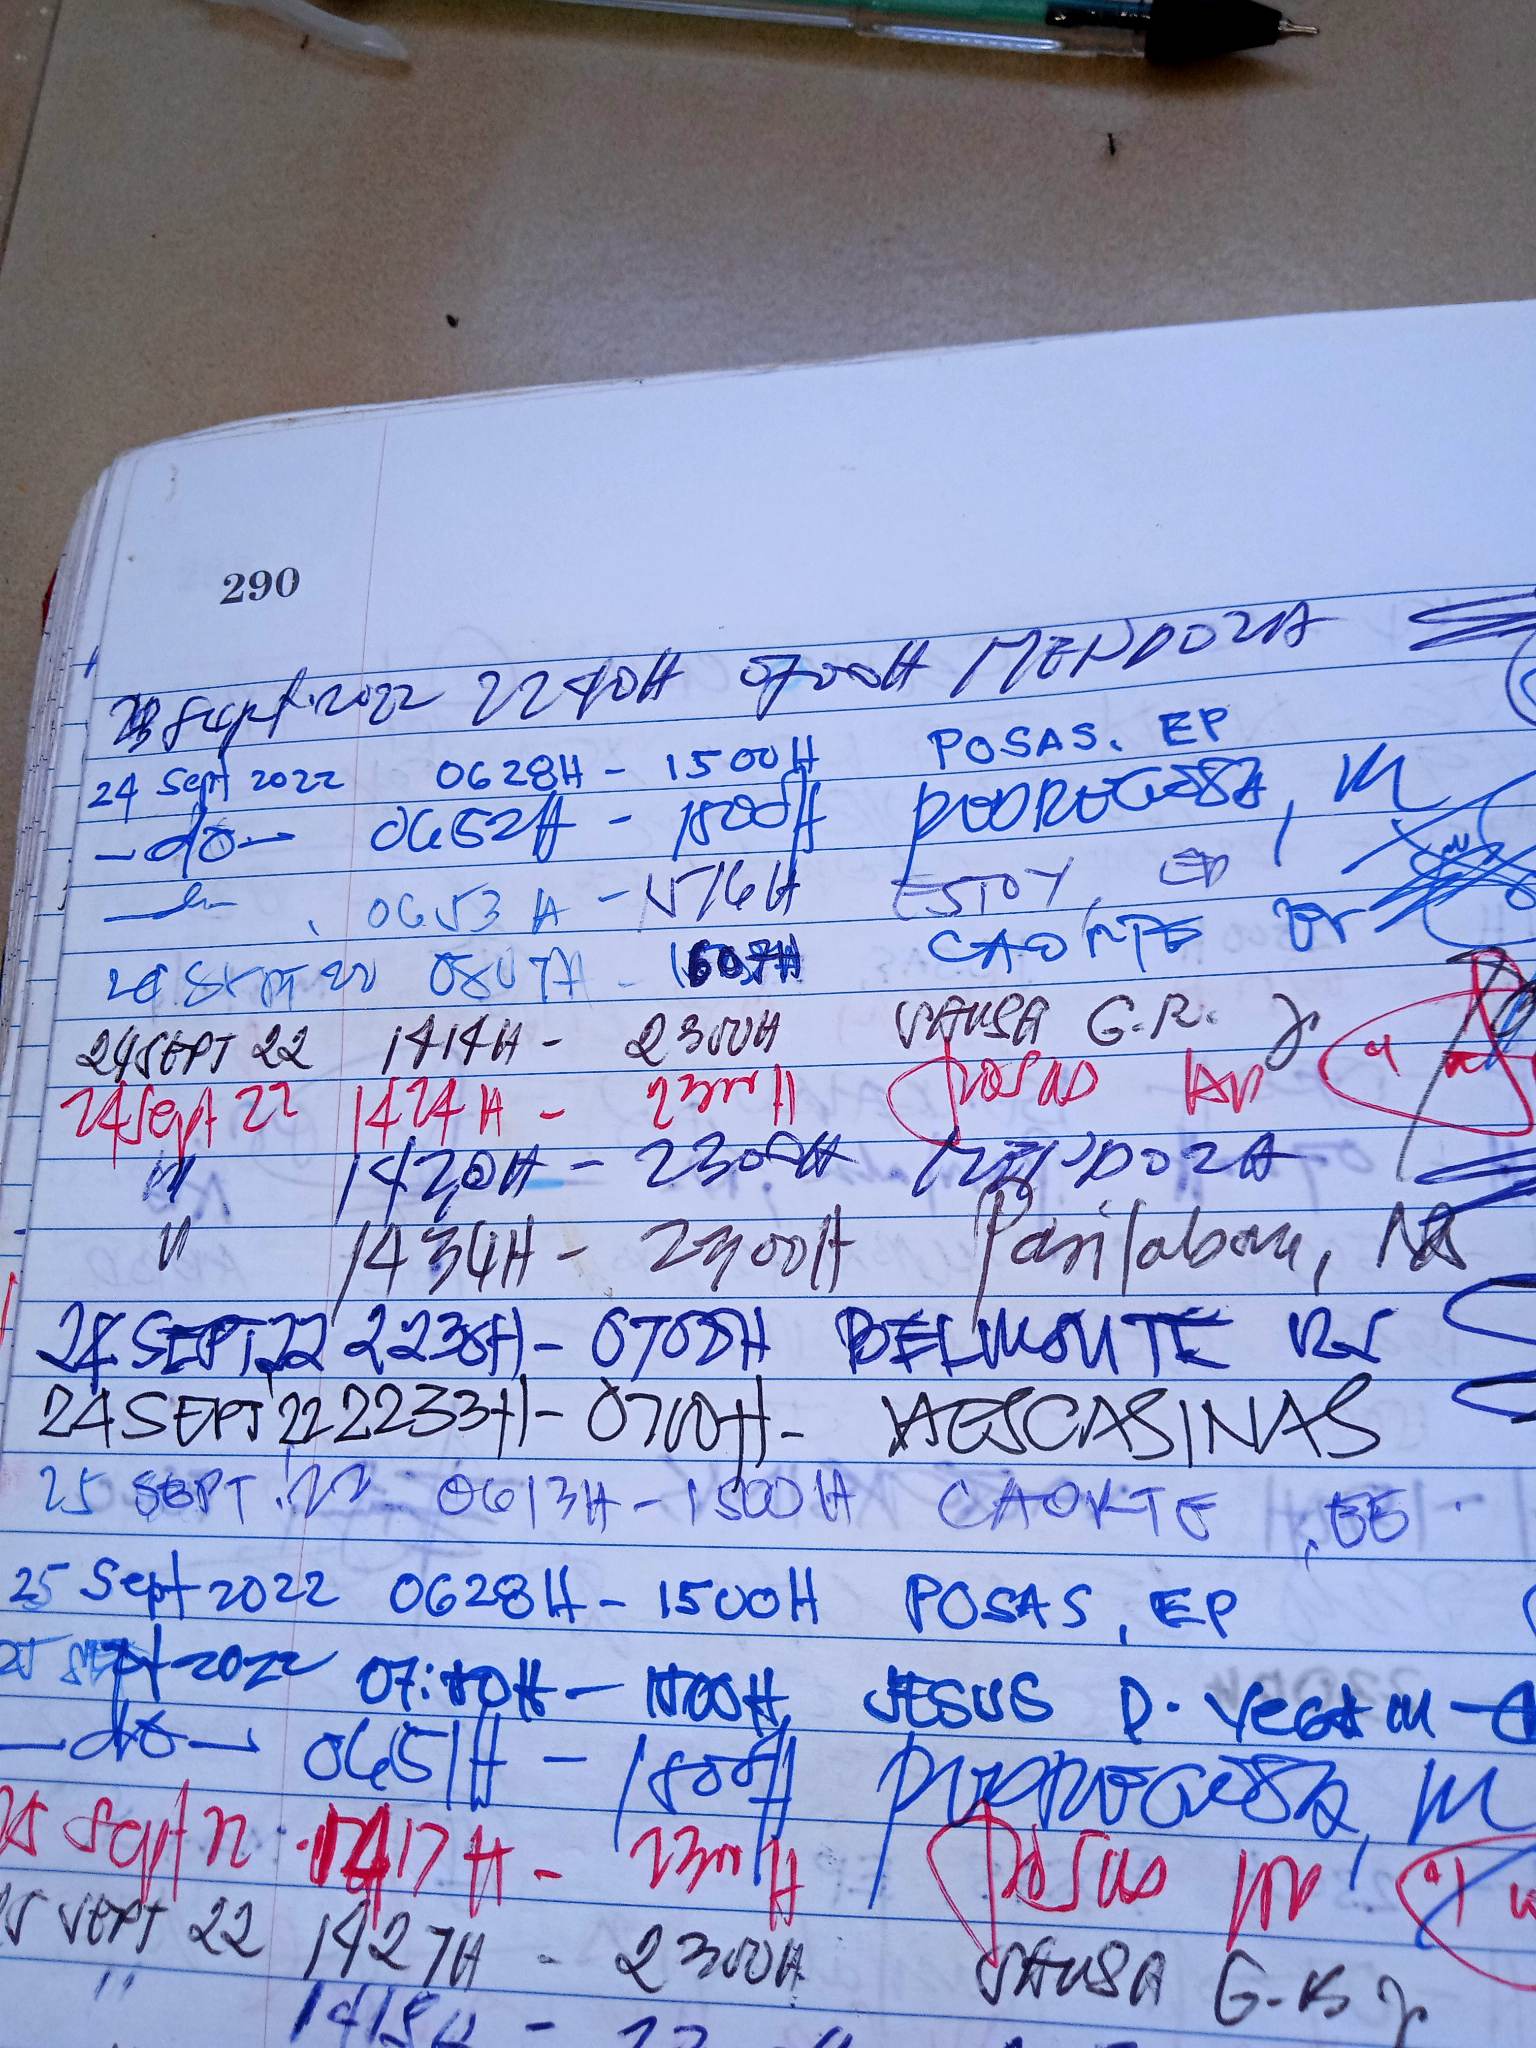 290
23 Sept. 2022 2240H 0700H MENDOZA
24 Sept 2022 0628H - 1500H POSAS. EP
-do- 0652H - 1800H PEDROGOSA, M
0653H - 1516H ESTOY, ED
24 SEPT 22 0807H - 1607H CAORTE
24 SEPT 22 1414H - 2300H SAUSA G.R. Jr
24 Sept 22 1424H - 2300H Posas
" 1420H - 2300H MENDOZA
" 1434H - 2300H Parilabon, NR
24 SEPT 22 2238H - 0708H BELMONTE RS
24 SEPT '22 2233H - 0700H - AESCASINAS
25 SEPT '22 0613H - 1500H CAORTE, EE
25 Sept 2022 0628H - 1500H POSAS, EP
25 SEPT 2022 07:10H - 1500H JESUS P.
-do- 0651H - 1800H PEDROGOSA, M
25 Sept 22 1417H - 2300H Posas
25 SEPT 22 1427H - 2300H SAUSA G.R Jr
" 1418H -